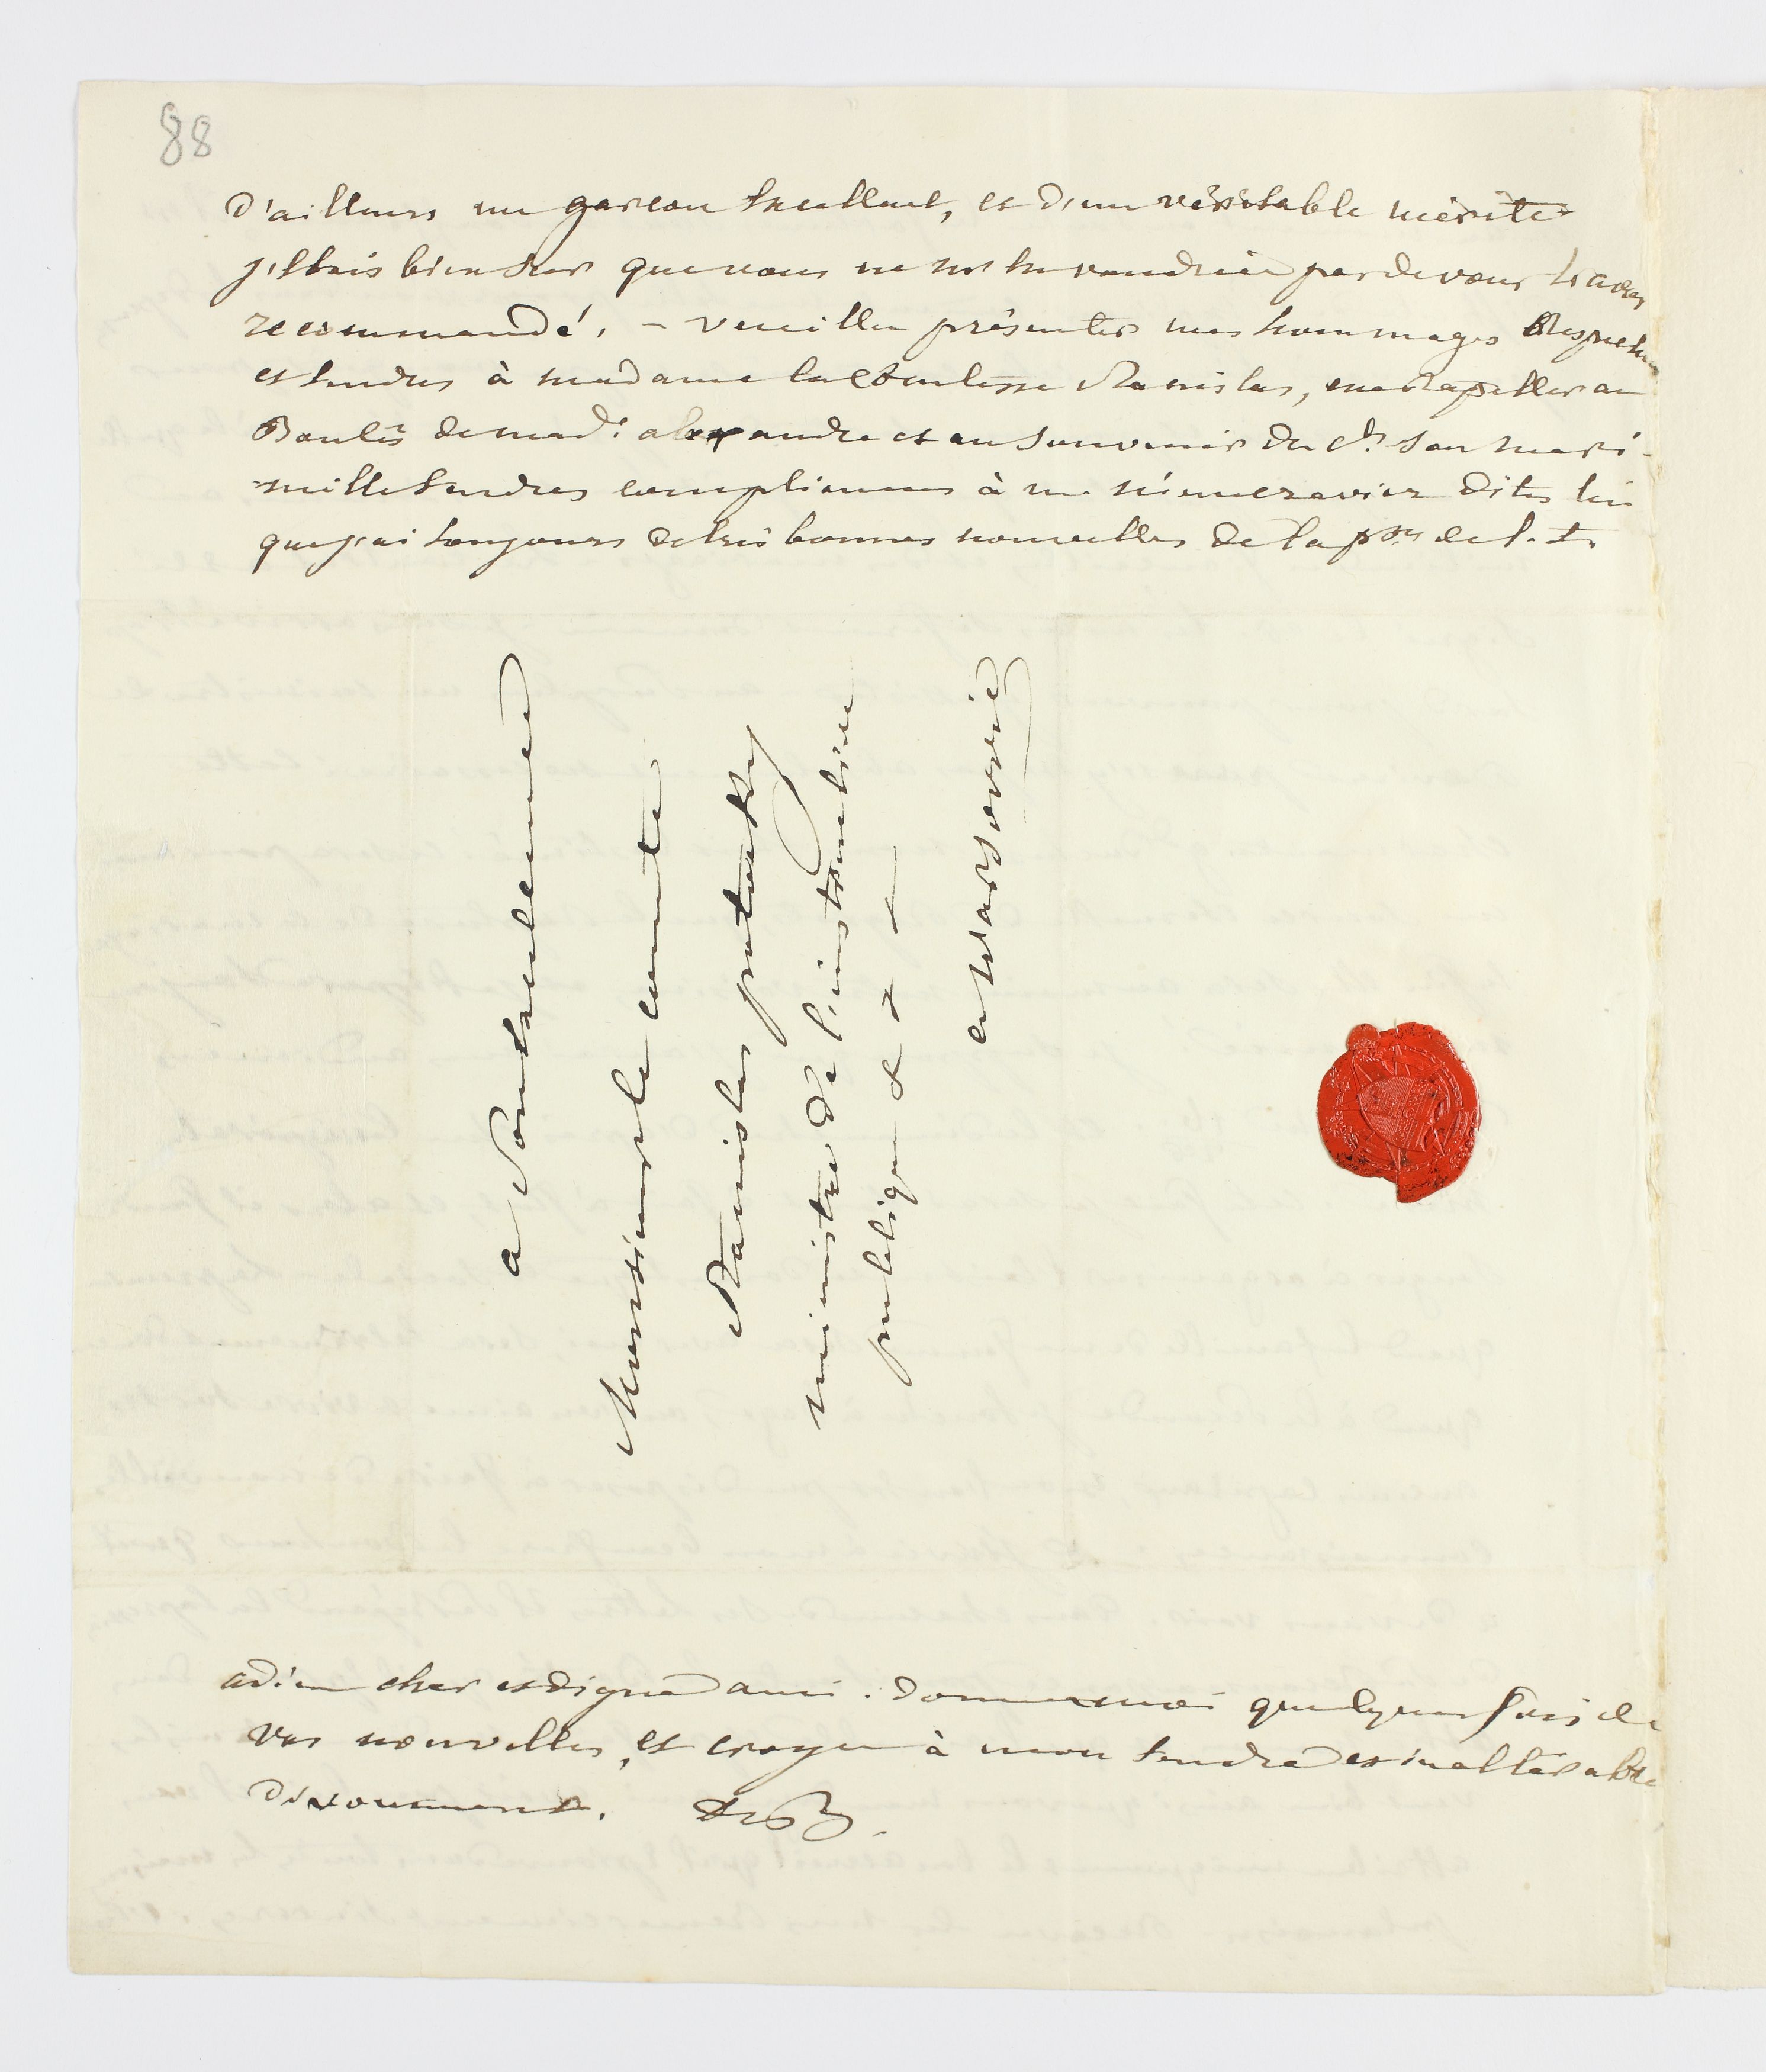 88
d'ailleurs un garcon excellent, et d'un véritable mérite
j'étais bien sur que vous ne m'en voudriez pas de vous l'avoir
recommandé. - veuillez présenter mes hommages Respectueux
et tendres à madame la Comtesse Stanislas, me Rapeller au
Bontés de mad.e alexandre et au souvenir du Cte son mari -
mille tendres complimens à mr niemczevicz dites lui
que j'ai toujours de très bonnes nouvelles de la psse de
a Son Excellence
Monsieur le comte
Stanislas potocky
ministre de l'instruction
publique & & &
a Warsovie
adieu cher et digne ami. donnez moi quelques fois de
vos nouvelles, et croyez à mon tendre et inaltérable
dévouement.